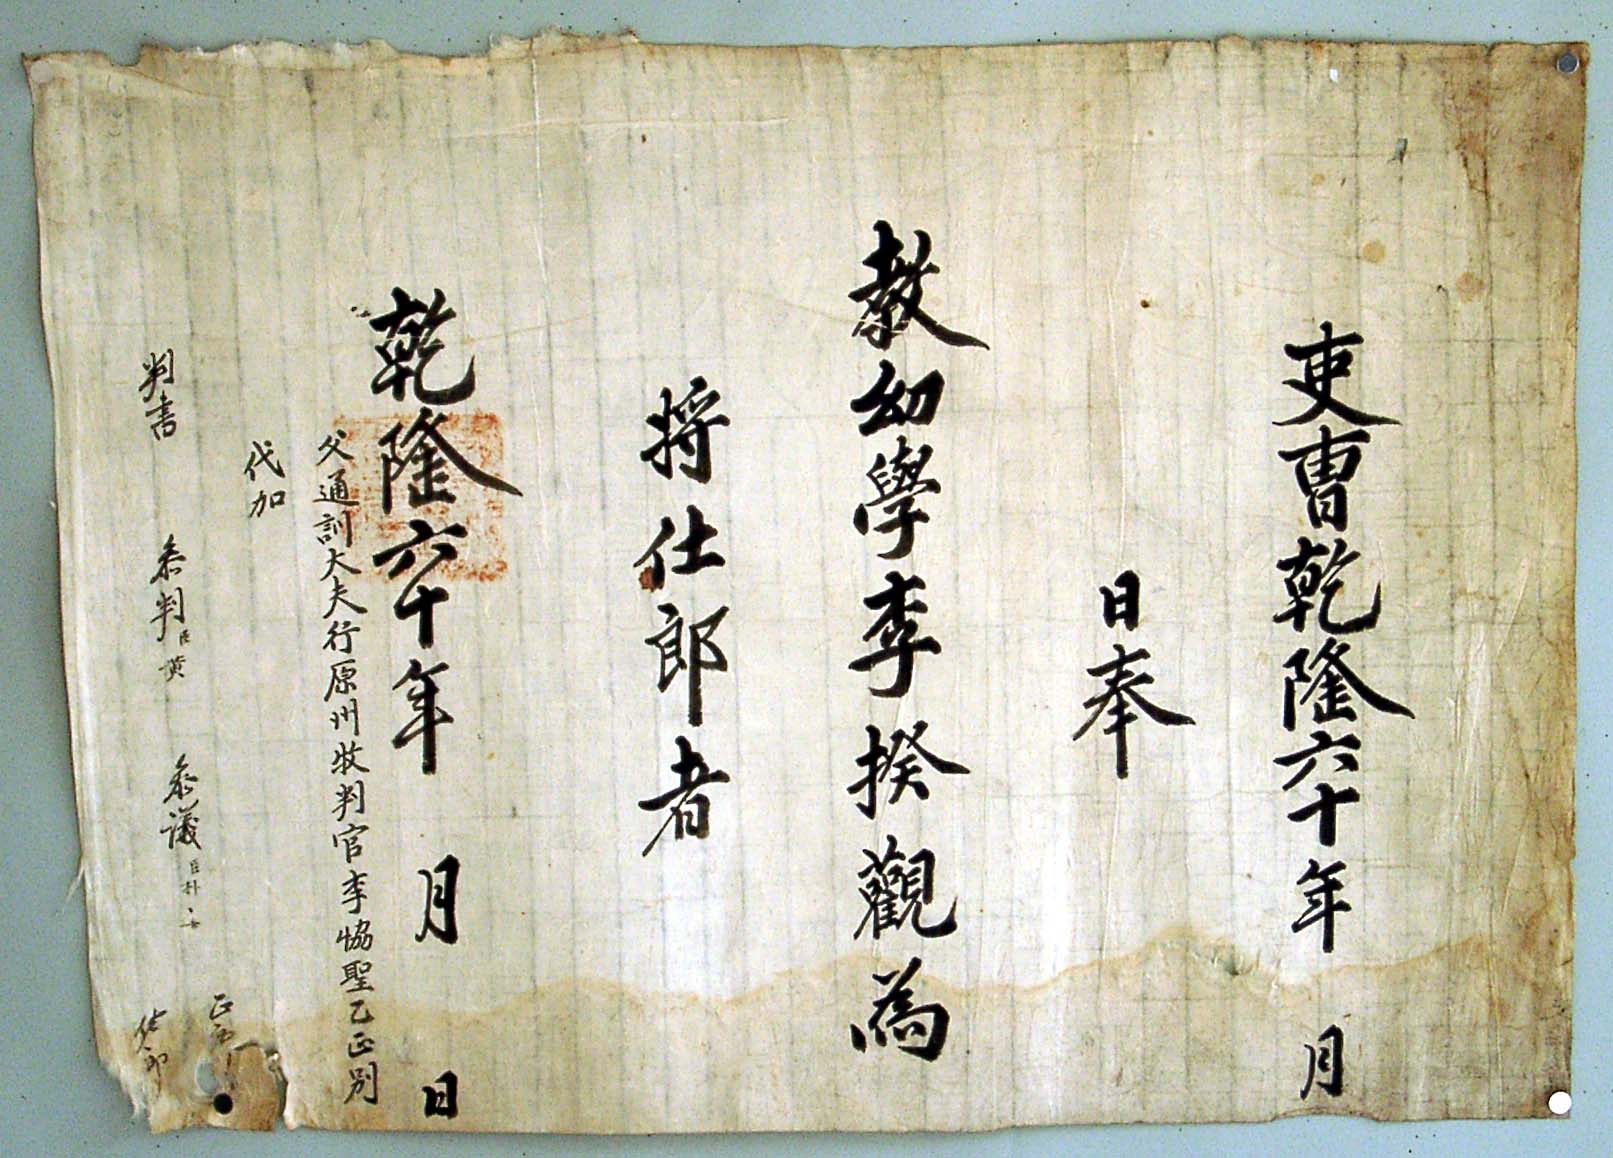 吏曹乾隆六十年 月
日奉
敎幼學李揆觀為
將仕郎者
乾隆六十年 月 日
父通訓大夫行原州牧判官李協聖乙正別
代加
判書 叅判臣黃 叅議臣朴
正郎
佐郎